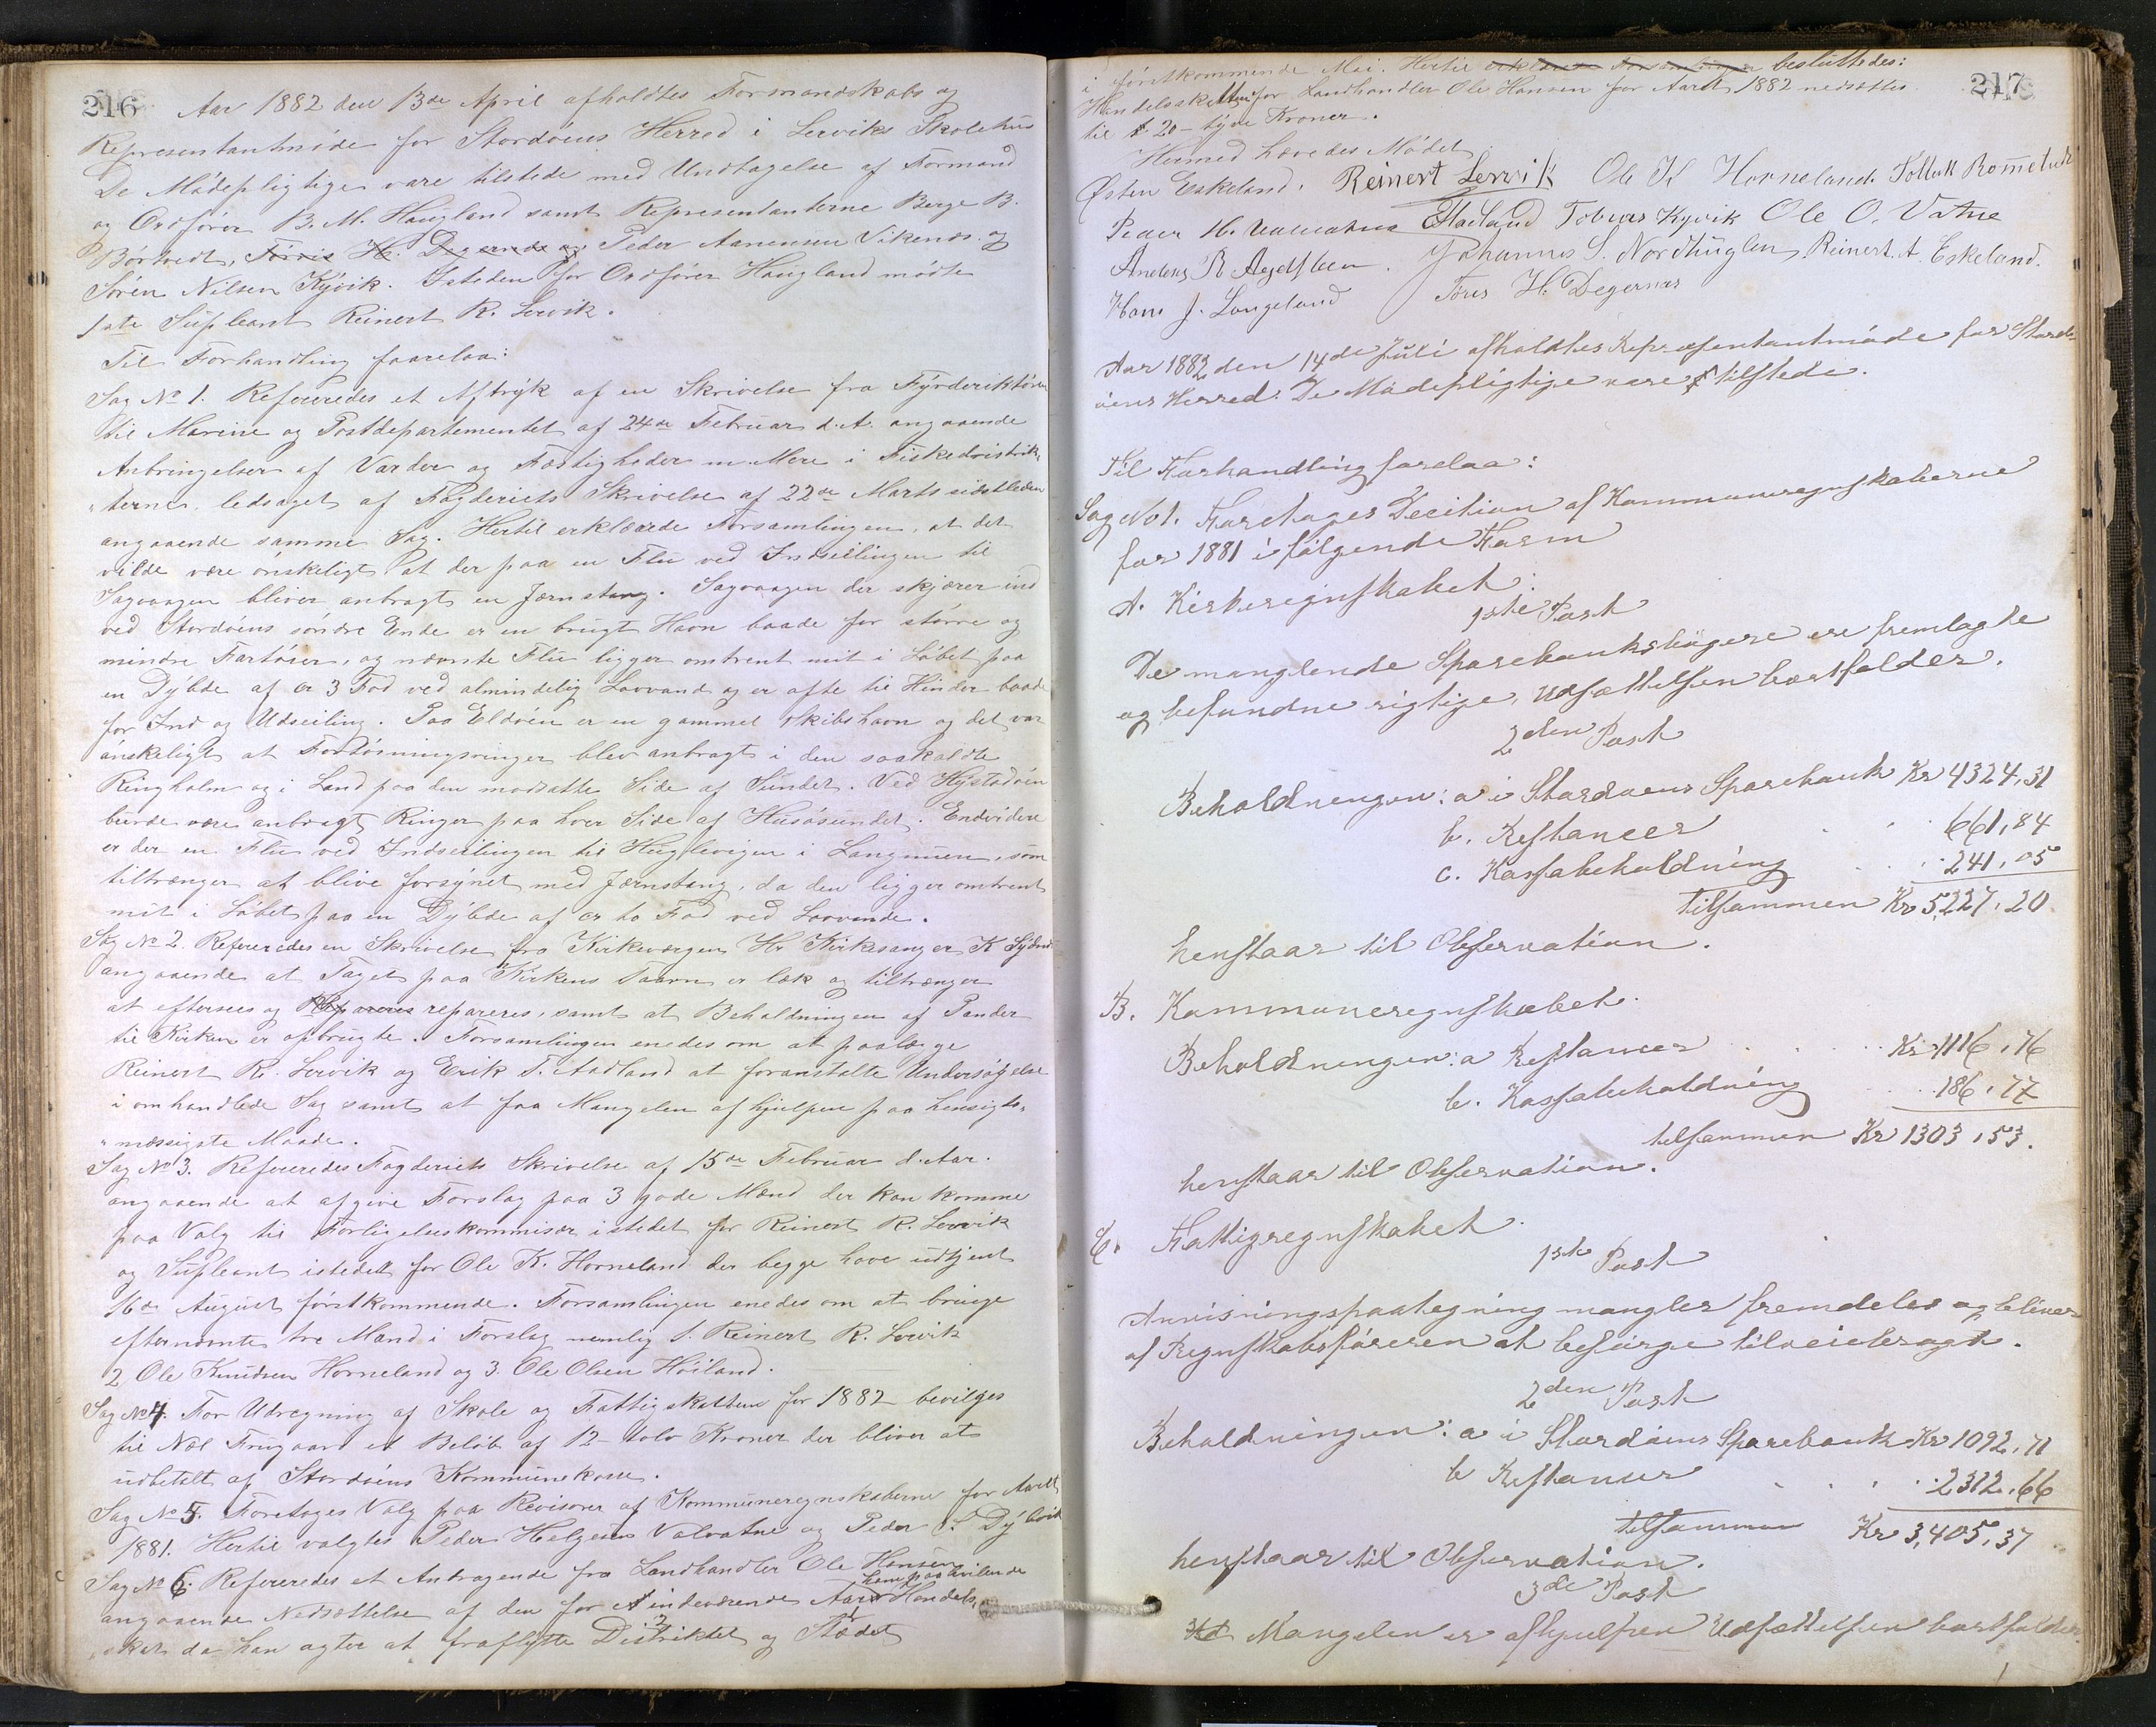 216
Aar 1882 den 13de April afholdtes Formandskabs og
Representantmöde for Stordöens Herred i Lerviks Skolehus
De Mödepligtige vare tilstede med Undtagelse af Formand
og Ordförer B. M. Haugland samt Representanterne Berge B.
Börtvedt, Törris H. Degernæs og Peder Aanensen Vikenes og
Sören Nilsen Kyvik. Isteden for Ordförer Haugland mödte
1ste Supleant Reinert R. Lervik.
Til Forhandling forelaa:
Sag No 1. Refereredes et Aftryk af en Skrivelse fra Fyrderiktören
til Marine og Postdepartementet af 24de Februar d. A. angaaende
Anbringelser af Varder og Fæstigheder m. Mere i Fiskedistrik-
"terne, ledsaget af Fogderiets Skrivelse af 22de Marts sidstleden
angaaende samme Sag. Hertil erklærede Forsamlingen, at det
vilde være önskeligt at der paa en Flu ved Indseilingen til
Sagvaagen bliver anbragt en Jærnstang. Sagvaagen der skjærer ind
ved Stordöens söndre Ende er en brugt Havn baade for större og
mindre Fartöier, og nævnte Flu ligger omtrent mit i Löbet paa
en Dybde af cr 3 Fod ved almindelig Lavvand og er ofte til Hinder baade
for Ind og Udseiling. Paa Eldöen er en gammel Skibshavn og det var
önskeligt at Fortöiningsringer blev anbragt i den saakaldte
Ringholm og i Land paa den modsatte Side af Sundet. Ved Hystadöen
burde være anbragt Ringer paa hver Side af Husösundet. Endvidere
er der en Flu ved Indseilingen til Huglevigen i Langenuen, som
tiltrænger at blive forsynet med Jærnstang, da den ligger omtrent
mit i Löbet paa en Dybde af cr to Fod ved Lavvande.
Sag No 2. Refereredes en Skrivelse fra Kirkeværgen Hr Kirkesanger K
angaaende at Taget paa Kirkens Taarn er læk og tiltrænger
at eftersees og Repareres repareres, samt at Beholdningen af Pander
til Kirken er opbrugte. Forsamlingen enedes om at paalægge
Reinert R. Lervik og Erik T. Aadland at foranstalte Undersögelse
i omhandlede Sag samt at faa Mangelen afhjulpen paa hensigts-
"mæssigste Maade.
Sag No 3. Refereredes Fogderiets Skrivelse af 15de Februar d. Aar.
angaaende at afgive Forslag paa 3 gode Mænd der kan komme
paa Valg til Forligelseskommisær istedet for Reinert R. Lervik
og Supleant istedet for Ole K. Horneland der begge have udtjent
16de August förstkommende. Forsamlingen enedes om at bringe
efternævnte tre Mænd i Forslag nemlig 1. Reinert R. Lervik
2 Ole Knudsen Horneland og 3. Ole Olsen Höiland.
Sag No 4. For Udregning af Skole og Fattigskatten for 1882 bevilges
til Nils Frugaard et Belöb af 12 - tolv Kroner der bliver at
udbetalt af Stordöens Kommunekasse.
Sag No 5. Foretoges Valg paa Revisorer af Kommuneregnskaberne for Aaret
1881. Hertil valgtes Peder Helgesen Valvatne og Peder S. Dybvik
Sag No 6. Refereredes et Andragende fra Landhandler Ole Hansen
angaaende Nedsættelse af den for indeværende Aar ham paahvilende Handels-
"skat, da han agter at fraflytte Distriktet og Stædet
217
i förstkommende Mai. Hertil erklærede Forsamlingen besluttedes:
Handelsskatten for Landhandler Ole Hansen for Aaret 1882 nedsættes
til 20 - tyve Kroner.
Hermed hævedes Mödet
Østen Eskeland. Reinert Lervik Ole K Horneland. Tollak Rommetveit
Peder H. Valvatne Tobias Kyvik Ole O. Vatne
Anders R Agdesteen. Johannes S. Nordhuglen Reinert. A. Eskeland.
Hans J. Langeland Töres H. Degernæs
Aar 1882 den 14de Juli afholdtes Repræsentantmöde for Stord-
öens Herred. De Mödepligtige vare tilstede.
Til Forhandling forelaa:
Sag No 1. Foretoges Decition af Kommuneregnskaberne
for 1881 i fölgende Form
A. Kirkeregnskabet:
1ste Post
De manglende Sparebanksbögere ere fremlagte
og befundne rigtige, Udsættelsen bortfalder.
2den Post
Beholdningen: a i Stordöens Sparebank Kr 4324,31
b. Restancer 661,84
c. Kassabeholdning 241,05
tilsammen Kr 5,227,20
henstaar til Observation.
B. Kommuneregnskabet.
Beholdningen: a Restancer Kr 1116,76
b. Kassabeholdning 186,77
tilsammen Kr 1303,53.
henstaar til Observation.
C. Fattigregnskabet.
1ste Post
Anvisningspaategning mangler fremdeles og bliver
af Regnskabsföreren at besörge tilveiebragt.
2den Post
Beholdningen: a i Stordöens Sparebank Kr 1092,71
b Restancer 2312,66
tilsammen Kr 3,405,37
henstaar til Observation.
3de Post
Mangelen er afhjulpen Udsættelsen bortfalder.